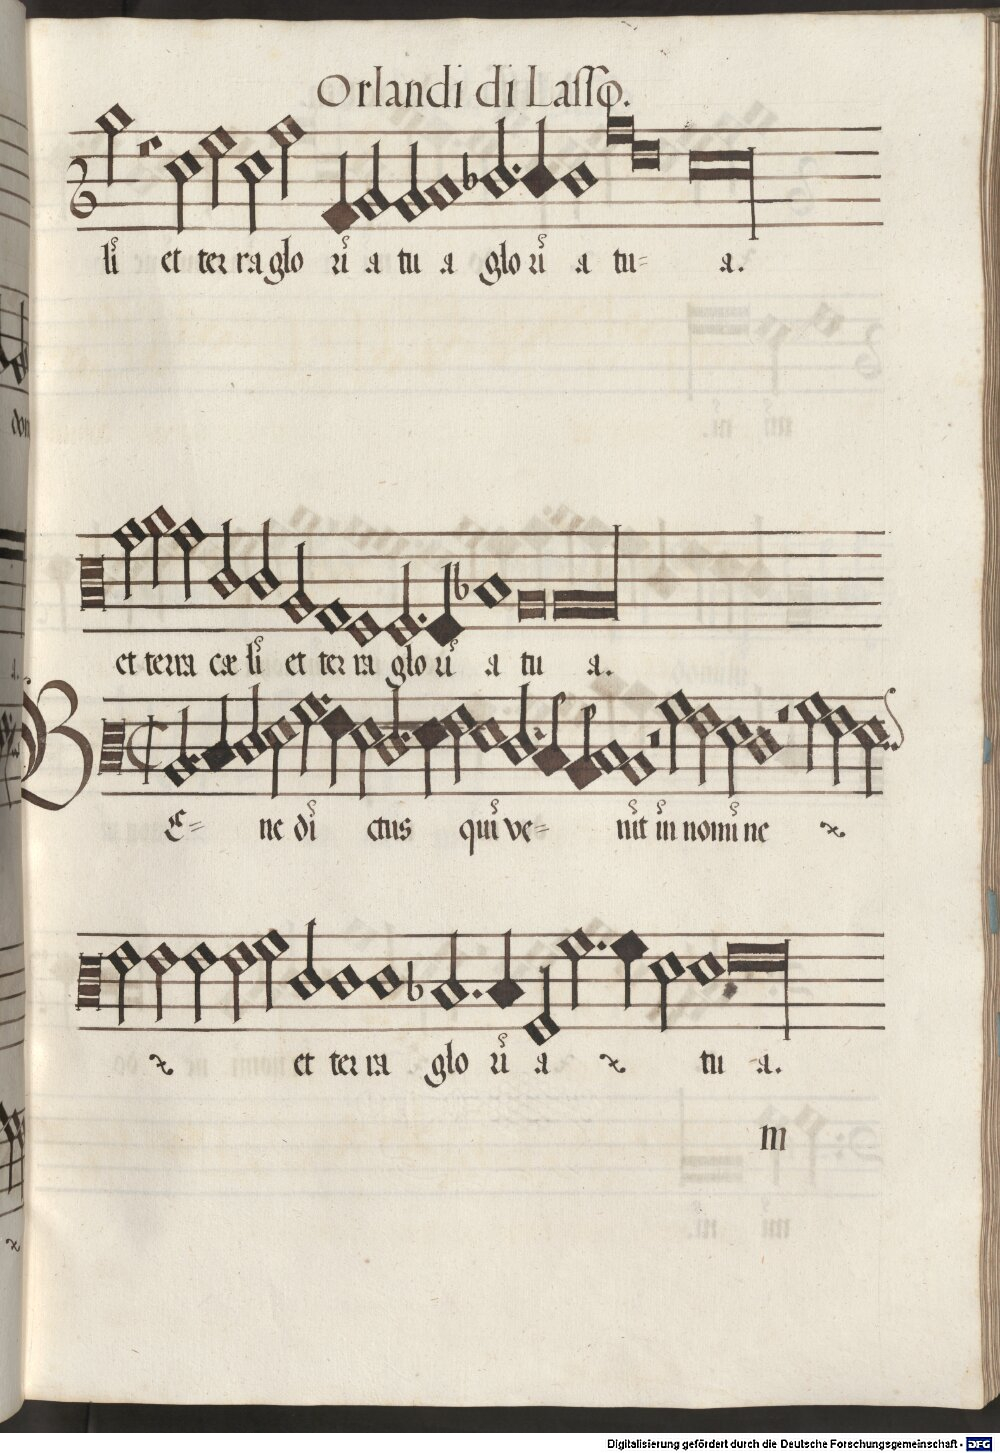 Orlandi di Lasso.
li et ter ra glo ri a tu a glo ri a tu= a.
et terra cæ li et ter ra glo ri a tu a.
BE= ne di ctus qui ve= nit in nomine
et ter ra glo ri a tu a.
m
Digitalisierung gefördert durch die Deutsche Forschungsgemeinschaft - DFG